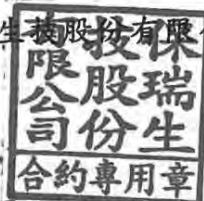 生技股份有限
保瑞生
技股份
有限公司
合約專用章